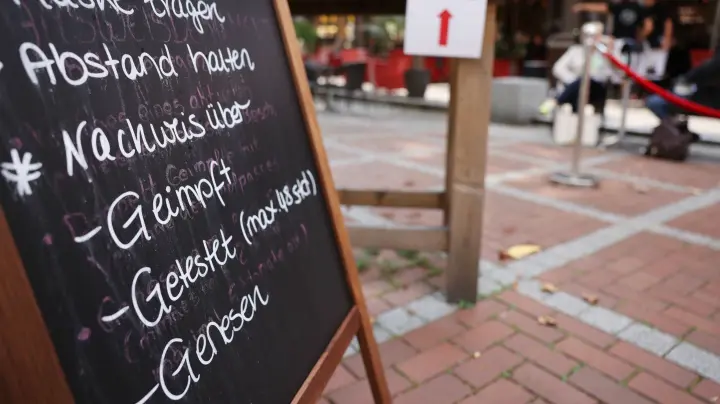 Maske tragen
- Abstand halten
* Nachweis über
- Geimpft
- Getestet (max. 48 std)
- Genesen